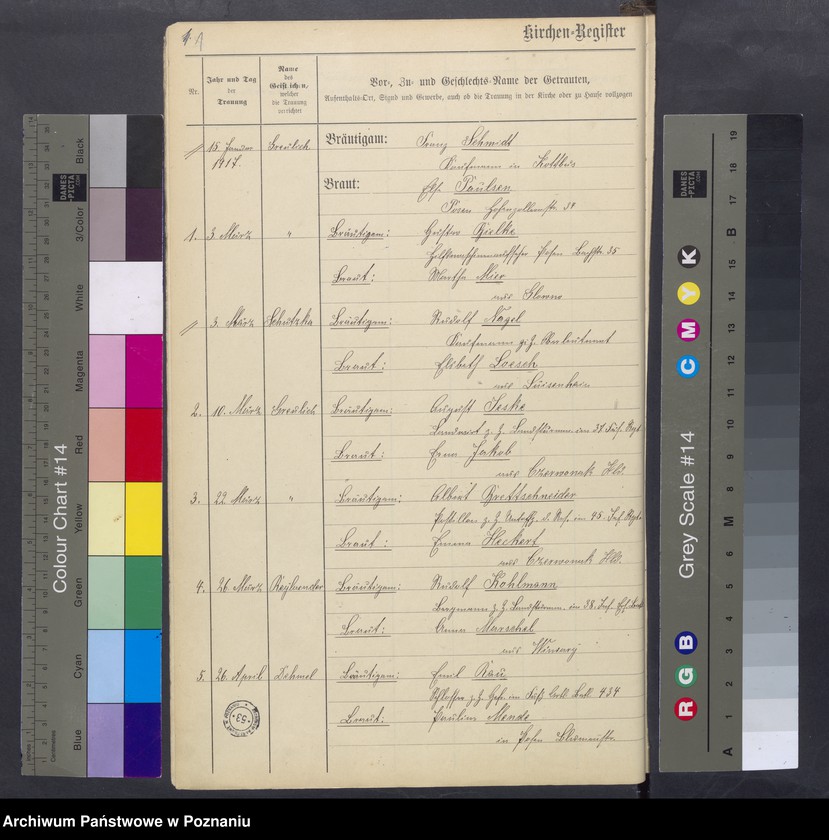 Kirchen-Register
Nr.
Jahr und Tag
der
Trauung
Name
des
Geistlichen,
welcher
die Trauung
verrichtet
Vor-, Zu- und Geschlechts-Name der Getrauten,
Aufenthalts-Ort, Stand und Gewerbe, auch ob die Trauung in der Kirche oder zu Hause vollzogen
15. Januar Greulich Bräutigam: Franz Schmidt
1917. Kaufmann in Kottbus
Braut: Else Paulsen
Posen Hohenzollernstr. 39
1. 3. März " Bräutigam: Gustav Bielke
Posen Bachstr. 35
Braut: Martha Mier
aus Glowno
3. März Schutzka Bräutigam: Rudolf Nagel
Kaufmann z. Z. Oberleutnant
Braut: Elsbeth Loesch
aus Luisenhain
2. 10. März Greulich Bräutigam: August Jeske
Landwirt z. Z. Landsturmm. im 37. Inf. Rgt.
Braut: Erna Jakob
aus Czerwonak Hld.
3. 22. März " Bräutigam: Albert Brettschneider
z. Z. Inf. Regt.
Braut: Emma Heckert
aus Czerwonak Hld.
4. 26. März Bräutigam: Rudolf Kohlmann
Bergmann z. Z. Landsturmm. im 38. Inf.
Braut: Anna Marschel
aus
5. 26. April Dehmel Bräutigam: Emil Rau
Schlosser z. Z. Gefr. im 434
Braut: Pauline Mende
in Posen
53
Colour Chart #14
Black
3/Color
White
Magenta
Red
Yellow
Green
Cyan
Blue
DANES
-PICTA
.COM
Grey Scale #14
DANES
-PICTA
.COM
C M Y K
R G B
A 1 2 3 4 5 6 M 8 9 10 11 12 13 14 15 B 17 18 19
Archiwum Państwowe w Poznaniu